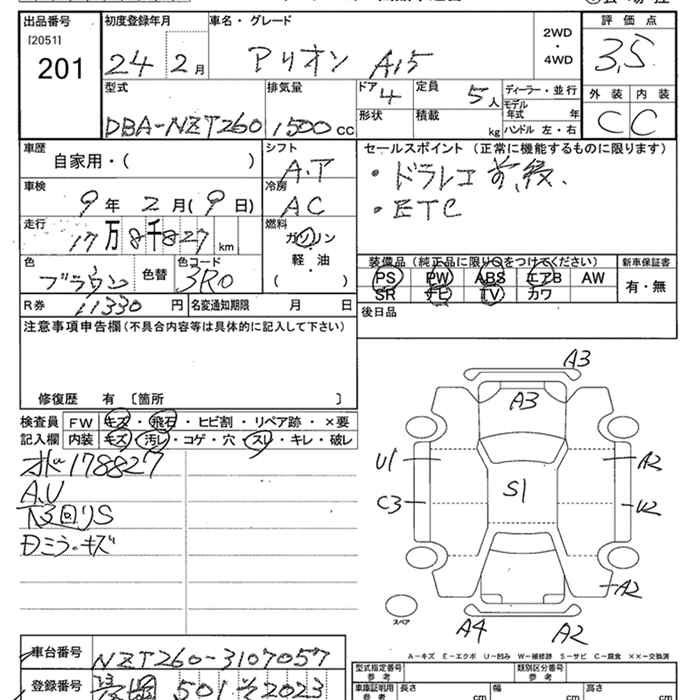 出品番号 初度登録年月 車名・グレード 評価点
[2051]
201 24年 2月 アリオン A15 2WD・4WD 3.5
型式 排気量 ドア 4 定員 5人 ディーラー・並行 外装 内装
DBA-NZT260 1500cc 形状 積載 kg モデル年式 年 C C
ハンドル 左・右
車歴 シフト セールスポイント (正常に機能するものに限ります)
自家用・( ) A.T ・ドラレコ 前,後.
車検 冷房 ・ETC
9年 2月(9日) AC
走行 燃料
17万8千827km ガソリン・軽油・( )
色 色替 色コード 装備品(純正品に限り○をつけてください) 新車保証書
ブラウン 3R0 PS PW ABS エアB AW 有・無
SR ナビ TV カワ
R券 11330円 名変通知期限 月 日 後日品
注意事項申告欄(不具合内容等は具体的に記入して下さい)
修復歴 有〔箇所 〕
検査員 FW キズ・飛石・ヒビ割・リペア跡・×要
記入欄 内装 キズ・汚レ・コゲ・穴・スレ・キレ・破レ
178827
A,U
下回りS
Dミラーキズ
A3
A3
U1 A2
S1
C3 U2
A2
スペア
A4 A2
A-キズ E-エクボ U-凹み W-補修跡 S-サビ C-腐食 ××-交換済
車台番号 NZT260-3107057
登録番号 501 そ 2023
型式指定番号 参考 類別区分番号 参考
車庫証明用 参考 長さ cm 幅 cm 高さ cm